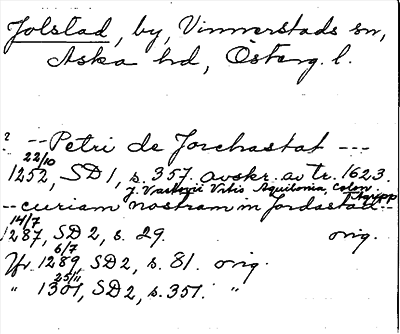 Jolstad, by, Vinnerstads sn,
Aska hd, Österg. l.
? -- Petri de Jorchastat ---
22/10
1252, SD 1, s. 357. avskr. av tr. 1623.
J. Vastovii Vitis Aquilonia, Colon. Agripp
-- curiam nostram in Jordastad --
14/7
1287, SD 2, s. 29. orig.
6/7
Jfr 1289, SD2, s. 81. orig.
25/11
" 1301, SD2, s. 351. "